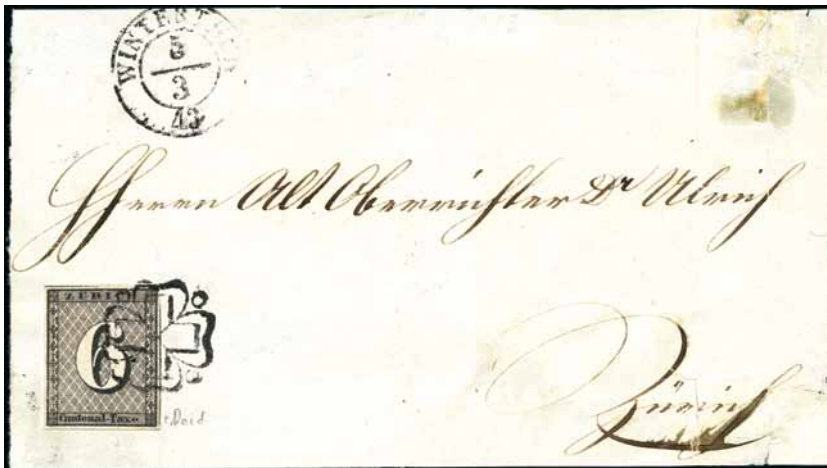 WINTERTHUR
5
3
43
Herrn Alt Oberrichter Dr Ulrich
ZÜRICH
6
Cantonal-Taxe.
Zürich